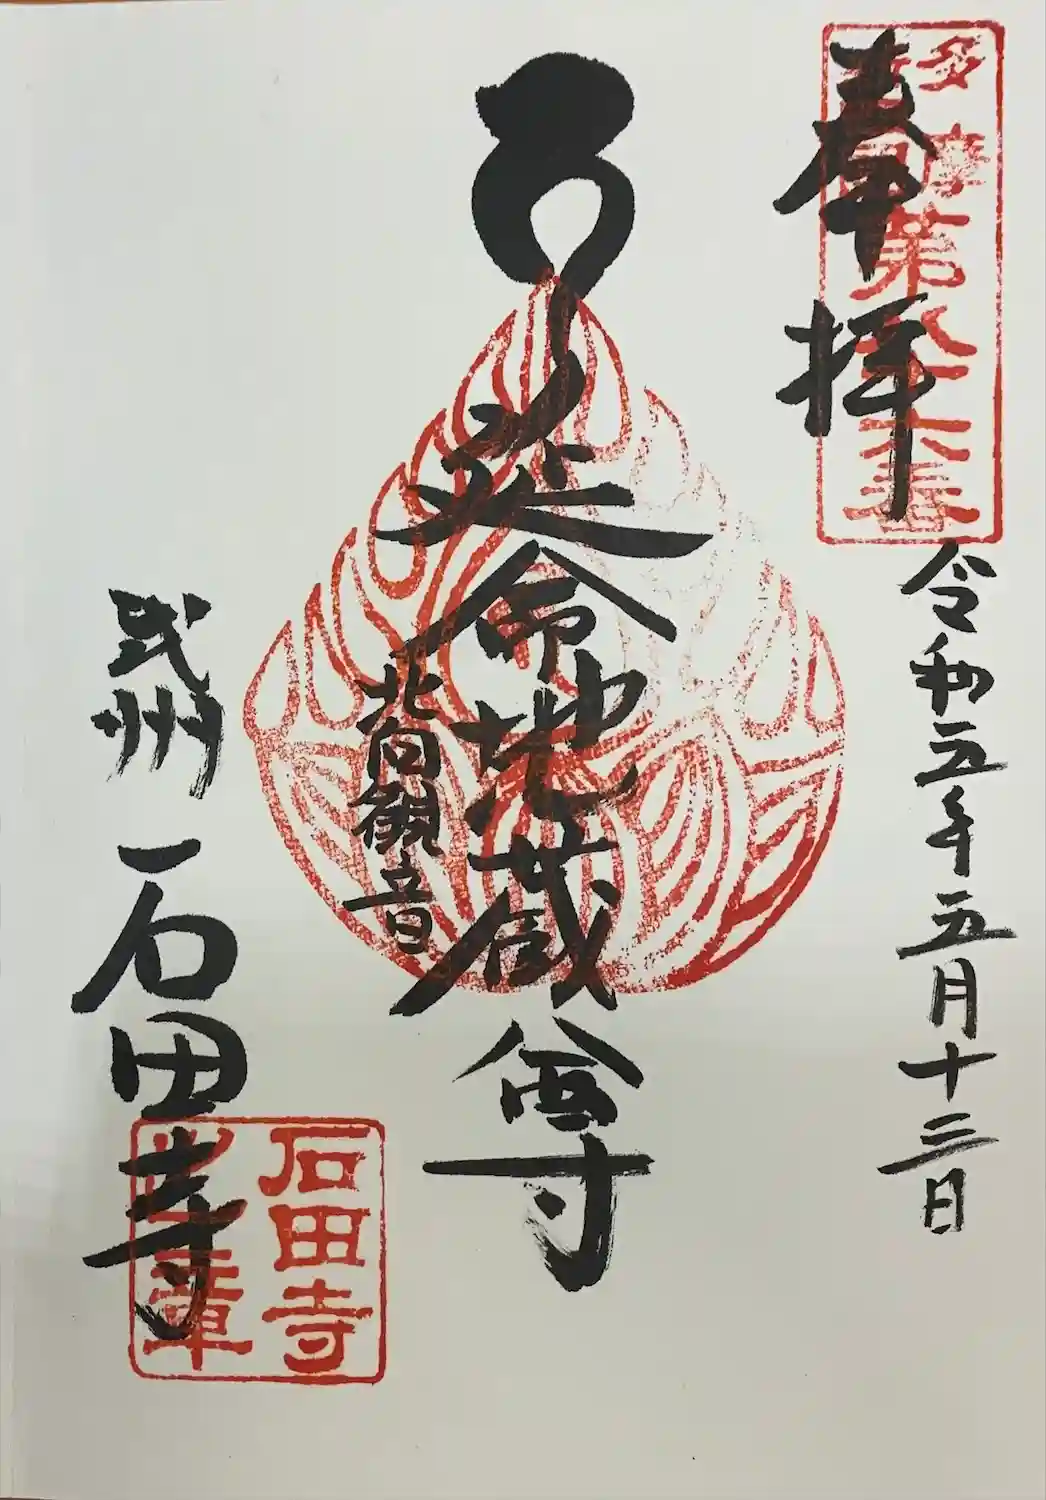 奉拝
多摩
四国
第八十六番
令和五年五月十三日
延命地蔵尊
北向観音
武州 石田寺
石田寺
之章